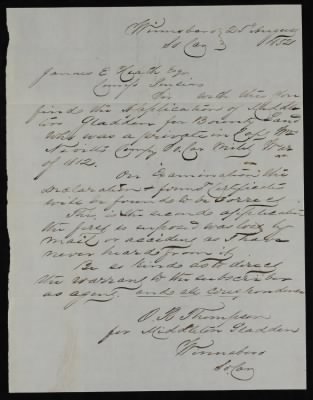 Winnsboro 25 August
So Car 1852
James E Heath Esqr
Comr Pensions
Sir with this you
find the Application of Middle
ton Gladden for Bounty Land
who was a private in Capt Wm
Nevitts Compy So. Car Mila War
of 1812.
On Examination the
declaration & former Certificate
will be found to be correct
This is the second application
the first is supposed was lost by
mail or accident as I have
never heard from it
Be so kind as to direct
the warrant to the subscriber
as agent and all correspondence
O R Thompson
for Middleton Gladden
Winnsboro
So Car